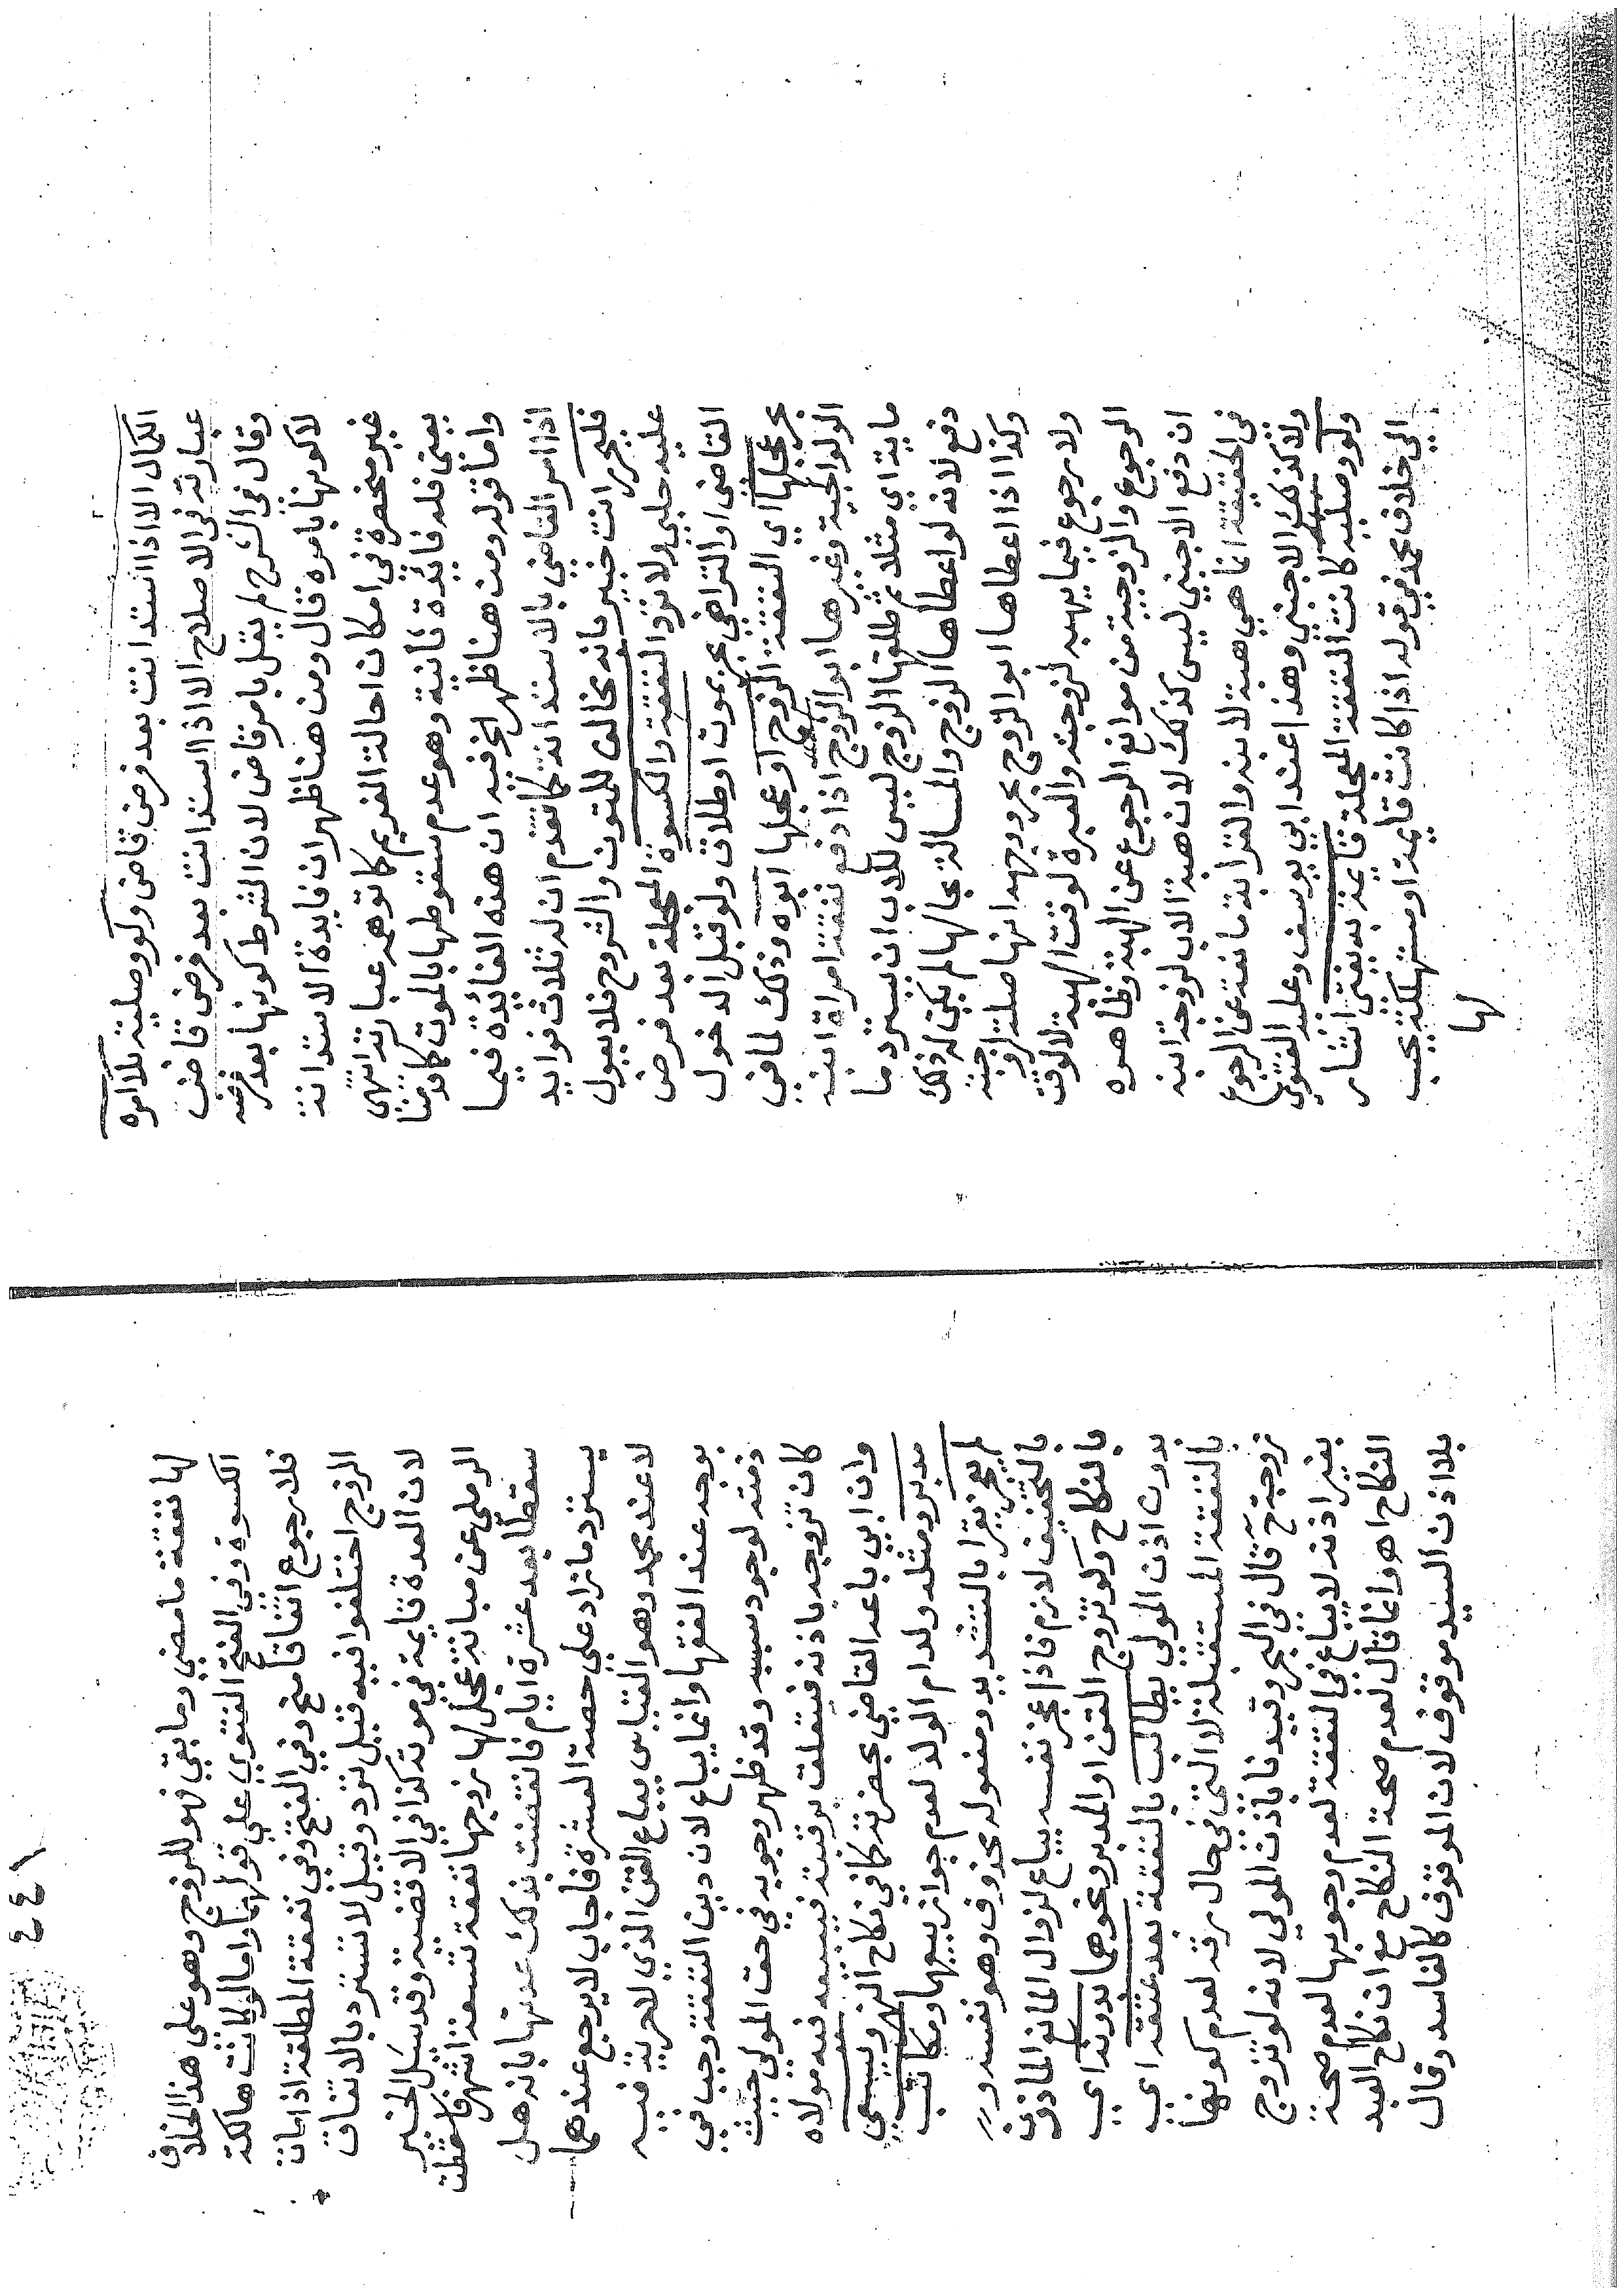 الكمال الا اذا استدانت بعد فرض قاض ولو وصلية بلا امره
عبارته في الاصلاح الا اذا استدانت بعد فرض قاض
وقال في الشرح لم يقل بامر قاض لان الشرط كونها بعد فرضه
لا كونها بامره قال ومن هنا ظهر ان فايدة الاستدانة
غير منحصرة في امكان احالة الغريم كما توهمه عبارته انتهى
يعني فله فائدة ثانية وهو عدم سقوطها بالموت كما قدمنا
واما قوله ومن هنا ظهر الخ فيفيد ان هذه الفائدة فيما
اذا امر القاضي بالاستدانة كما تقدم ان له ثلاث فوايد
فليحرر انت خبير بانه مخالف للمتون والشروح فلا يعول
عليه حلبي ولا ترد النفقة والكسوة المعجلة بعد فرض
القاضي او التراضي بحر بموت او طلاق ولو قبل الدخول
بحر عجلها اي النفقة الزوج او عجلها ابوه وذلك لما في
الولوالجية وغيرها ابو الزوج اذا دفع نفقة امراة ابنه
ماية اي مثلا ثم طلقها الزوج ليس للاب ان يسترد ما
دفع لانه لو اعطاها الزوج والمسالة بحالها لم يكن له ذلك
وكذا اذا اعطاها ابو الزوج بحر ووجهه انها صلة لزوجته
ولا رجوع فيما يهبه لزوجته والعبرة لوقت الهبة لا لوقت
الرجوع والزوجية من موانع الرجوع عن الهبة وظاهره
ان دفع الاجنبي ليس كذلك لان هبة الاب لزوجة ابنه
في الحقيقة انما هي هبة لابنه والقرابة مانعة عن الرجوع
ولا كذلك الاجنبي وهذا عند ابي يوسف وعليه الفتوى
ولو وصلية كانت النفقة المعجلة قايمة به يفتى اشار
الى خلاف محمد في قوله اذا كانت قايمة او مستهلكة يجب
لها
٤٤١
لها نفقة ما مضى وما بقي فهو للزوج وهو على هذا الخلاف
الكسوة وفي الفتح الفتوى على قولهما واما لو كانت هالكة
فلا رجوع اتفاقا منح وفي الفتح وفي نفقة المطلقة اذا مات
الزوج اختلفوا فيه قيل ترد وقيل لا تسترد بالاتفاق
لان العدة قايمة في موته كذا في الاقضية وقد سئل الخير
الرملي عن مبانة عجل لها زوجها نفقة تسعة اشهر فاسقطت
سقطا بعد عشرة ايام فانقضت بذلك عدتها بانه هل
يسترد ما زاد على حصة العشرة فاجاب لا يرجع عندهما
لا عند محمد وهو القياس يباع القن الذي لا حرية فيه
يوجه عند الفقها وانما يباع لان دين النفقة وجب في
ذمته لوجود سببه وقد ظهر وجوبه في حق المولى حيث
كان تزوجه باذنه فيتعلق برقبته فيبيعه فيه مولاه
وان ابى باعه القاضي بحضرته كما في نكاح النهر ويسعى
مدبر ومثله ولد ام الولد لعدم جواز بيعهما ومكاتب
لم يعجز يقرا بالتشديد ومفعوله محذوف وهو نفسه ورر
بالتخفيف لازم فاذا عجز نفسه يباع لزوال المانع الماذون
بالنكاح ولو تزوج القن او المدبر ونحوهما بدونه اي
بدون اذن المولى يطالب بالنفقة بعد عتقه اي
بالنفقة المستقبلة لا التي في حال رقه لعدم كونها
زوجة ح قال في البحر وقيدنا باذن المولى لانه لو تزوج
بغير اذنه لا يباع في النفقة لعدم وجوبها لعدم صحة
النكاح اهـ وانما قال لعدم صحة النكاح مع ان نكاح العبد
بلا اذن السيد موقوف لان الموقوف كالفاسد وقال